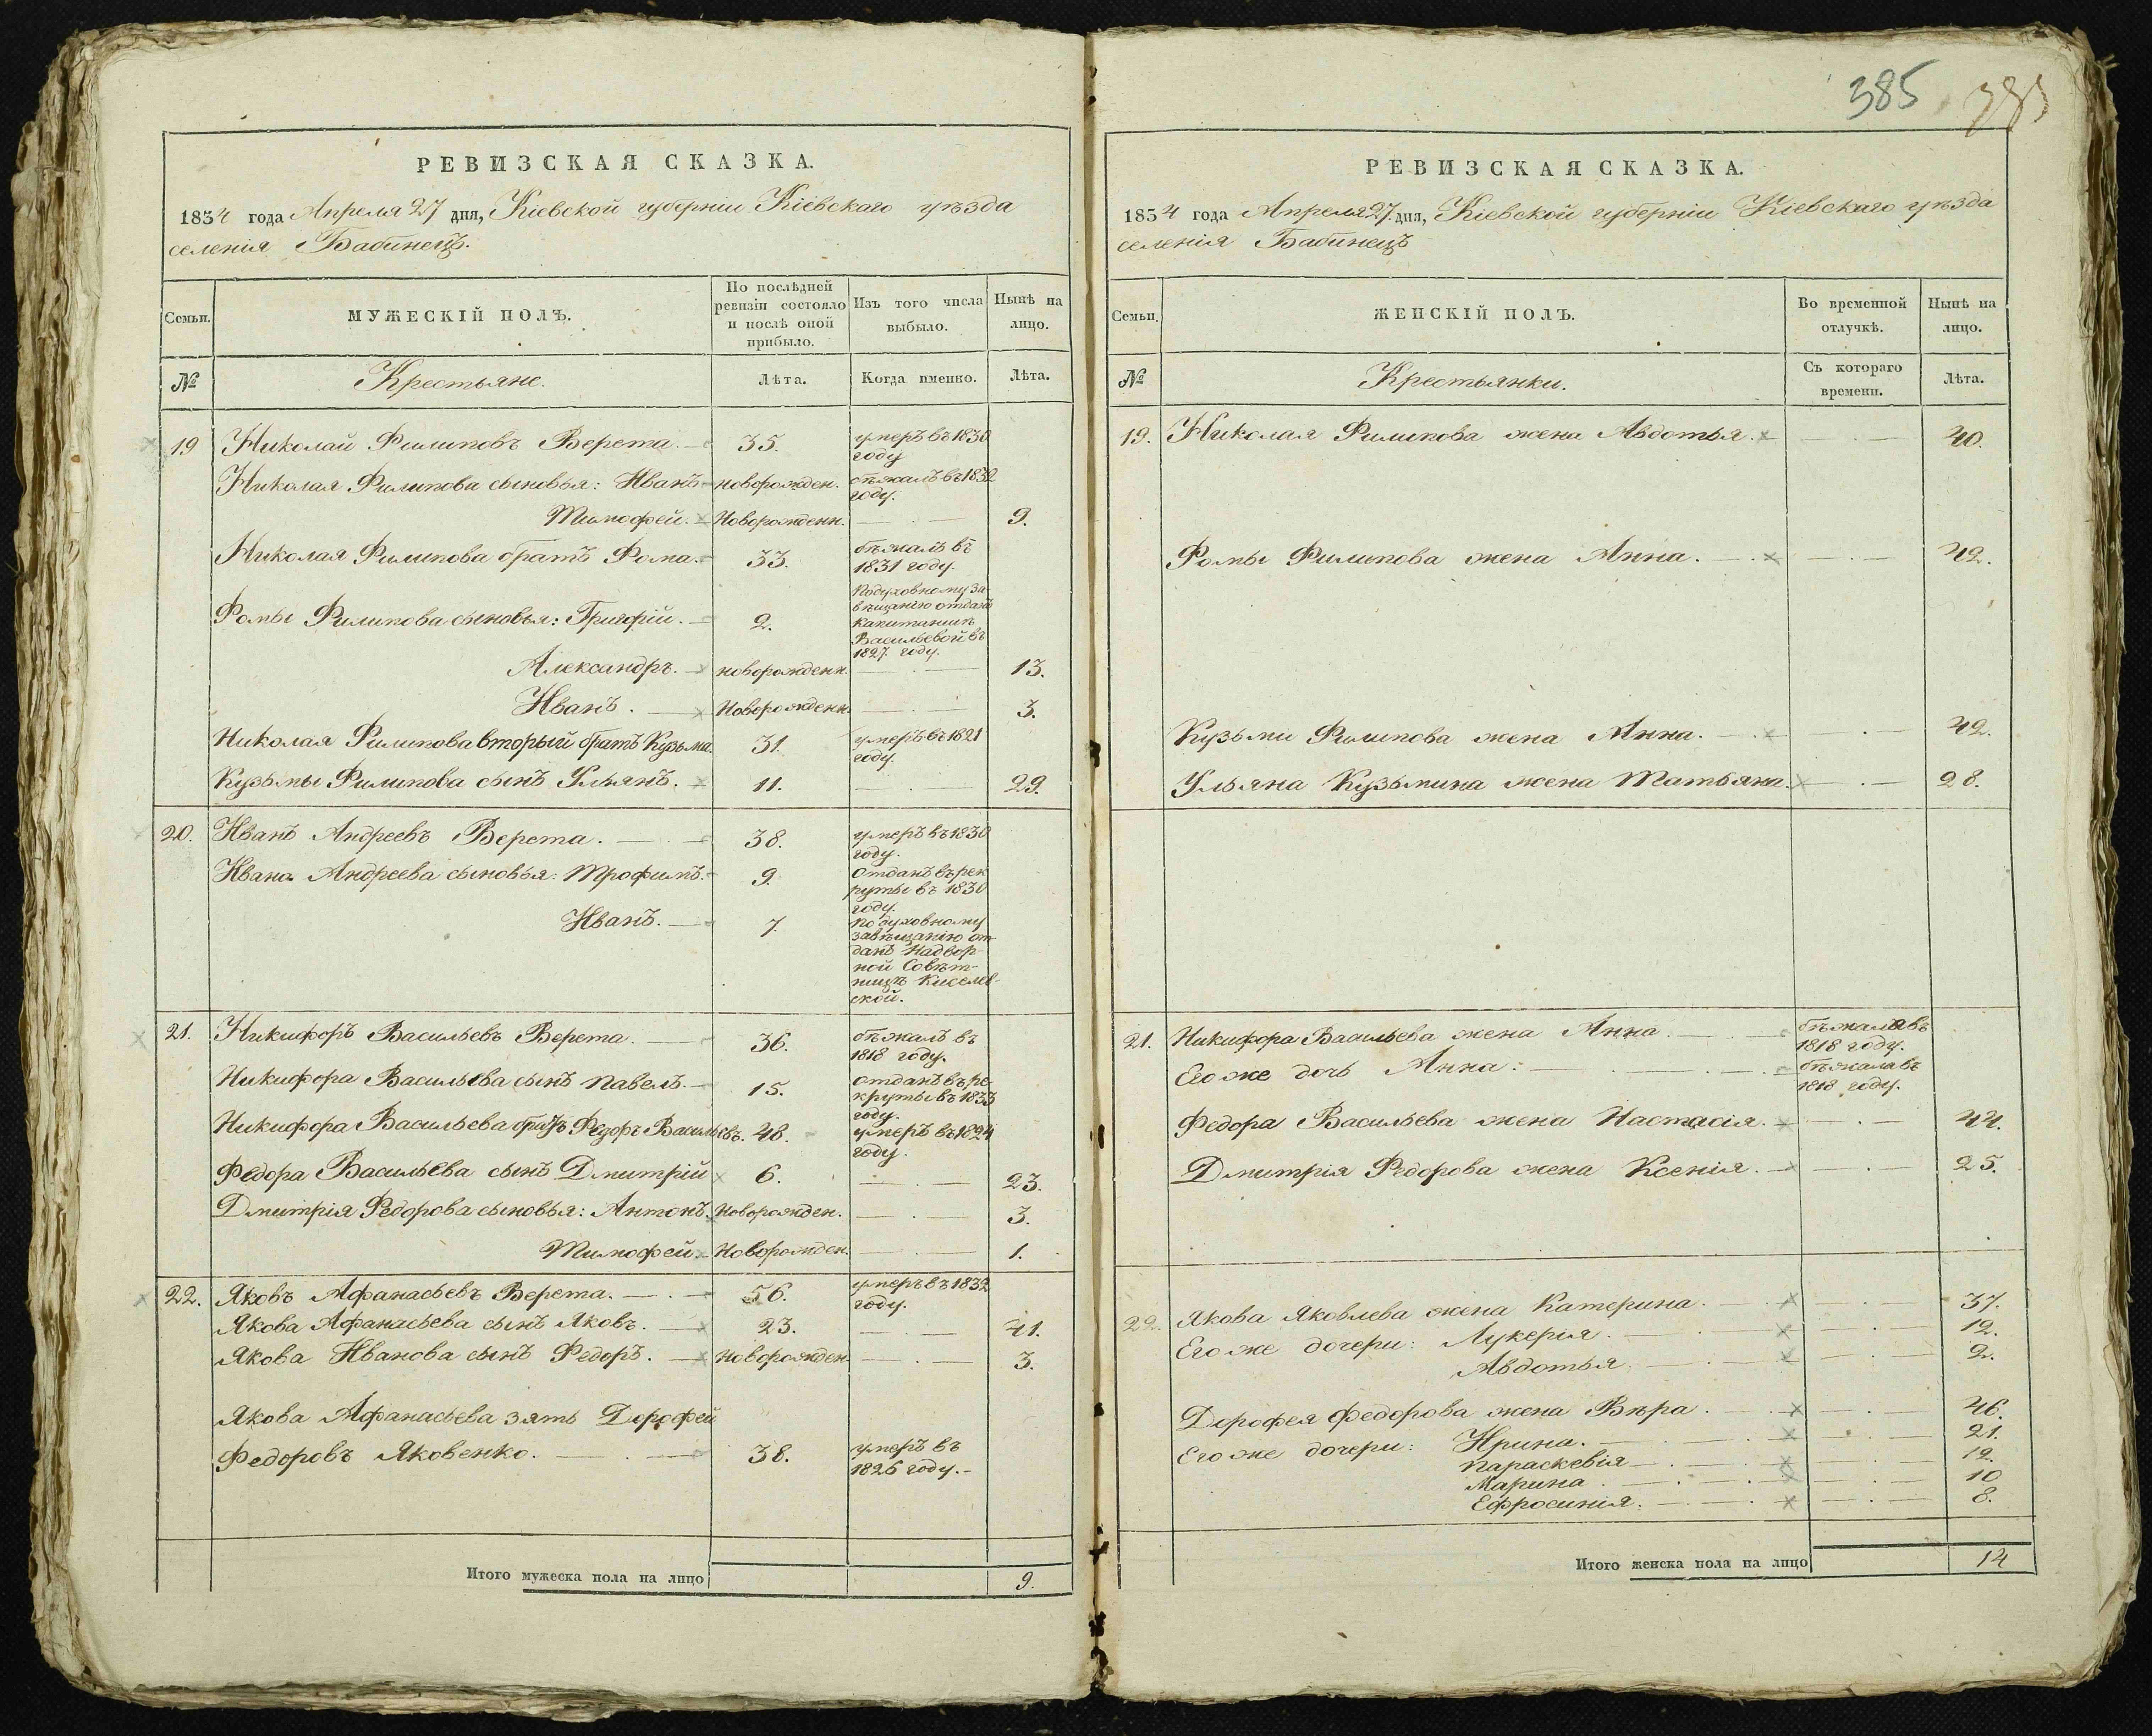 РЕВИЗСКАЯ СКАЗКА.
1834 года Апреля 27 дня, Кіевской губерніи Кіевскаго уѣзда
селенія Бабинецъ.
Семьи.
МУЖЕСКІЙ ПОЛЪ.
По послѣдней
ревизіи состояло
и послѣ оной
прибыло.
Изъ того числа
выбыло.
Нынѣ на
лицо.
№
Крестьяне.
Лѣта.
Когда именно.
Лѣта.
19 Николай Филиповъ Верета. 35. умеръ въ 1830
году
Николая Филипова сыновья: Иванъ новорожден. бѣжалъ въ 1832
году.
Тимофей. Новорожденн. 9.
Николая Филипова братъ Фома. 33. бѣжалъ въ
1831 году.
Фомы Филипова сыновья: Григорій. 2. По духовному за-
вѣщанію отданъ
капитаншѣ
Васильевой въ
1827 году.
Александръ. новорожденн. 13.
Иванъ. Новорожденн. 3.
Николая Филипова вторый братъ Кузьма. 31. умеръ въ 1821
году.
Кузьмы Филипова сынъ Ульянъ. 11. 29.
20. Иванъ Андреевъ Верета. 38. умеръ въ 1830
году.
Ивана Андреева сыновья: Трофимъ. 9. отданъ въ рек
руты въ 1830
году.
Иванъ. 7. по духовному
завѣщанію от-
данъ Надвор-
ной Совѣт-
ницѣ Киселев-
ской.
21. Никифоръ Васильевъ Верета. 36. бѣжалъ въ
1818 году.
Никифора Васильева сынъ Павелъ. 15. отданъ въ ре-
круты въ 1833
году.
Никифора Васильева братъ Федоръ Васильевъ. 48. умеръ въ 1824
году.
Федора Васильева сынъ Дмитрій 6. 23.
Дмитрія Федорова сыновья: Антонъ. Новорожден. 3.
Тимофей. Новорожден. 1.
22. Яковъ Афанасьевъ Верета. 56. умеръ въ 1832
году.
Якова Афанасьева сынъ Яковъ. 23. 41.
Якова Иванова сынъ Федоръ. Новорожден. 3.
Якова Афанасьева зять Дорофей
Федоровъ Яковенко. 38. умеръ въ
1826 году.
Итого мужеска пола на лицо 9.
385
РЕВИЗСКАЯ СКАЗКА.
1834 года Апреля 27. дня, Кіевской губерніи Кіевскаго уѣзда
селенія Бабинецъ
Семьи.
ЖЕНСКІЙ ПОЛЪ.
Во временной
отлучкѣ.
Нынѣ на
лицо.
№
Крестьянки.
Съ котораго
времени.
Лѣта.
19. Николая Филипова жена Авдотья. 40.
Фомы Филипова жена Анна. 42.
Кузьми Филипова жена Анна. 42.
Ульяна Кузьмина жена Татьяна. 28.
21. Никифора Васильева жена Анна. бѣжала въ
1818 году.
Его же дочь Анна: бѣжала въ
1818 году.
Федора Васильева жена Настасія. 44.
Дмитрія Федорова жена Ксенія. 25.
22. Якова Яковлева жена Катерина. 37.
Его же дочери: Лукерія. 12.
Авдотья. 2.
Дорофея Федорова жена Вѣра. 46.
Его же дочери: Ирина. 21.
Параскевія 12.
Марина 10
Ефросинія. 8.
Итого женска пола на лицо 14